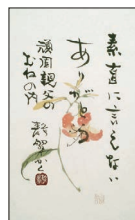 素直に言えない
ありがとう
頑固親父の
むねの中